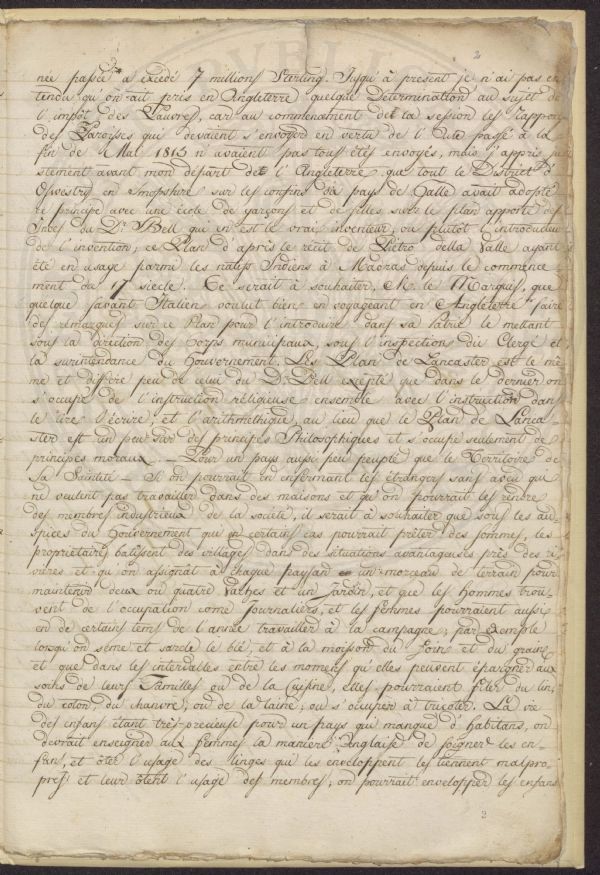 2
née passée a excédé 7 millions Sterling. Jusqu'à present je n'ai pas en
tendu qu'on ait pris en Angleterre quelque Determination au sujet de
l'impôt des Pauvres, car au commencement de la session les rapports
des Paroises qui devaient s'envoyer en vertu de l'Acte passé à la
fin de Mai 1815 n'avaient pas tous étés envoyés, mais j'appris ju
stement avant mon départ de l'Angleterre que tout le District d'
Oswestry en Shropshire sur les confins du pays de Galle avait adopté
le principe avec une école de garçons et de filles sur le plan apporté des
Indes du Dr Bell qui en est le vrai inventeur, ou plutôt l'introducteur
de l'invention; ce Plan d'après le récit de Pietro della Valle ayant
été en usage parmi les natifs Indiens à Madras depuis le commence
ment du 17 siecle. Ce serait à souhaiter, M. le Marquis, que
quelque savant Italien voulut bien en voyageant en Angleterre faire
des remarques sur ce Plan pour l'introduire dans sa Patrie le mettant
sous la direction des Corps municipaux, sous l'inspection du Clergé et
la surintendance du Gouvernement. Les Plan de Lancaster est le mê
me et differe peu de celui du D. Bell excepté que dans le dernier on
s'occupe de l'instruction réligieuse ensemble avec l'instruction dans
le lire l'écrire, et l'arithmethique, au lieu que le Plan de Lanca
ster est un peu sur des principes Philosophiques et s'occupe seulement de
principes moraux. — Pour un pays aussi peu peuplé que le Territoire de
Sa Sainteté — Si on pourrait en enfermant les étrangers sans aveu qui
ne veulent pas travailler dans des maisons et qu'on pourrait les rendre
des membres industrieux de la société, il serait à souhaiter que sous les au
spices du Gouvernement qui en certains cas pourrait prêter des sommes, les
proprietaires batissent des villages dans des situations avantageuses près des ri
vieres et qu'on assignât à chaque paysan un morceau de terrain pour
maintenir deux ou quatre Vaches et un jardin, et que les hommes trou
vent de l'occupation come journaliers, et les femmes pourraient aussi
en de certains tems de l'année travailler à la campagne; par exemple
lorsqu'on séme et sarcle le blé, et à la moison du foins et du grains
et que dans les intervalles entre les momens qu'elles peuvent épargner aux
soins de leurs Familles ou de la Cuisine, elles pourraient filer du lin,
du coton, du chanvre, ou de la laine, ou s'occuper à tricoter. La vie
des enfans étant très précieuse pour un pays qui manque d'habitans, on
devrait enseigner aux femmes la maniere Anglaise de soigner les en-
fans, et ôter l'usage des linges qui les enveloppent les tiennent malpro-
pres et leur ôtent l'usage des membres; on pourrait envelopper les enfans
2